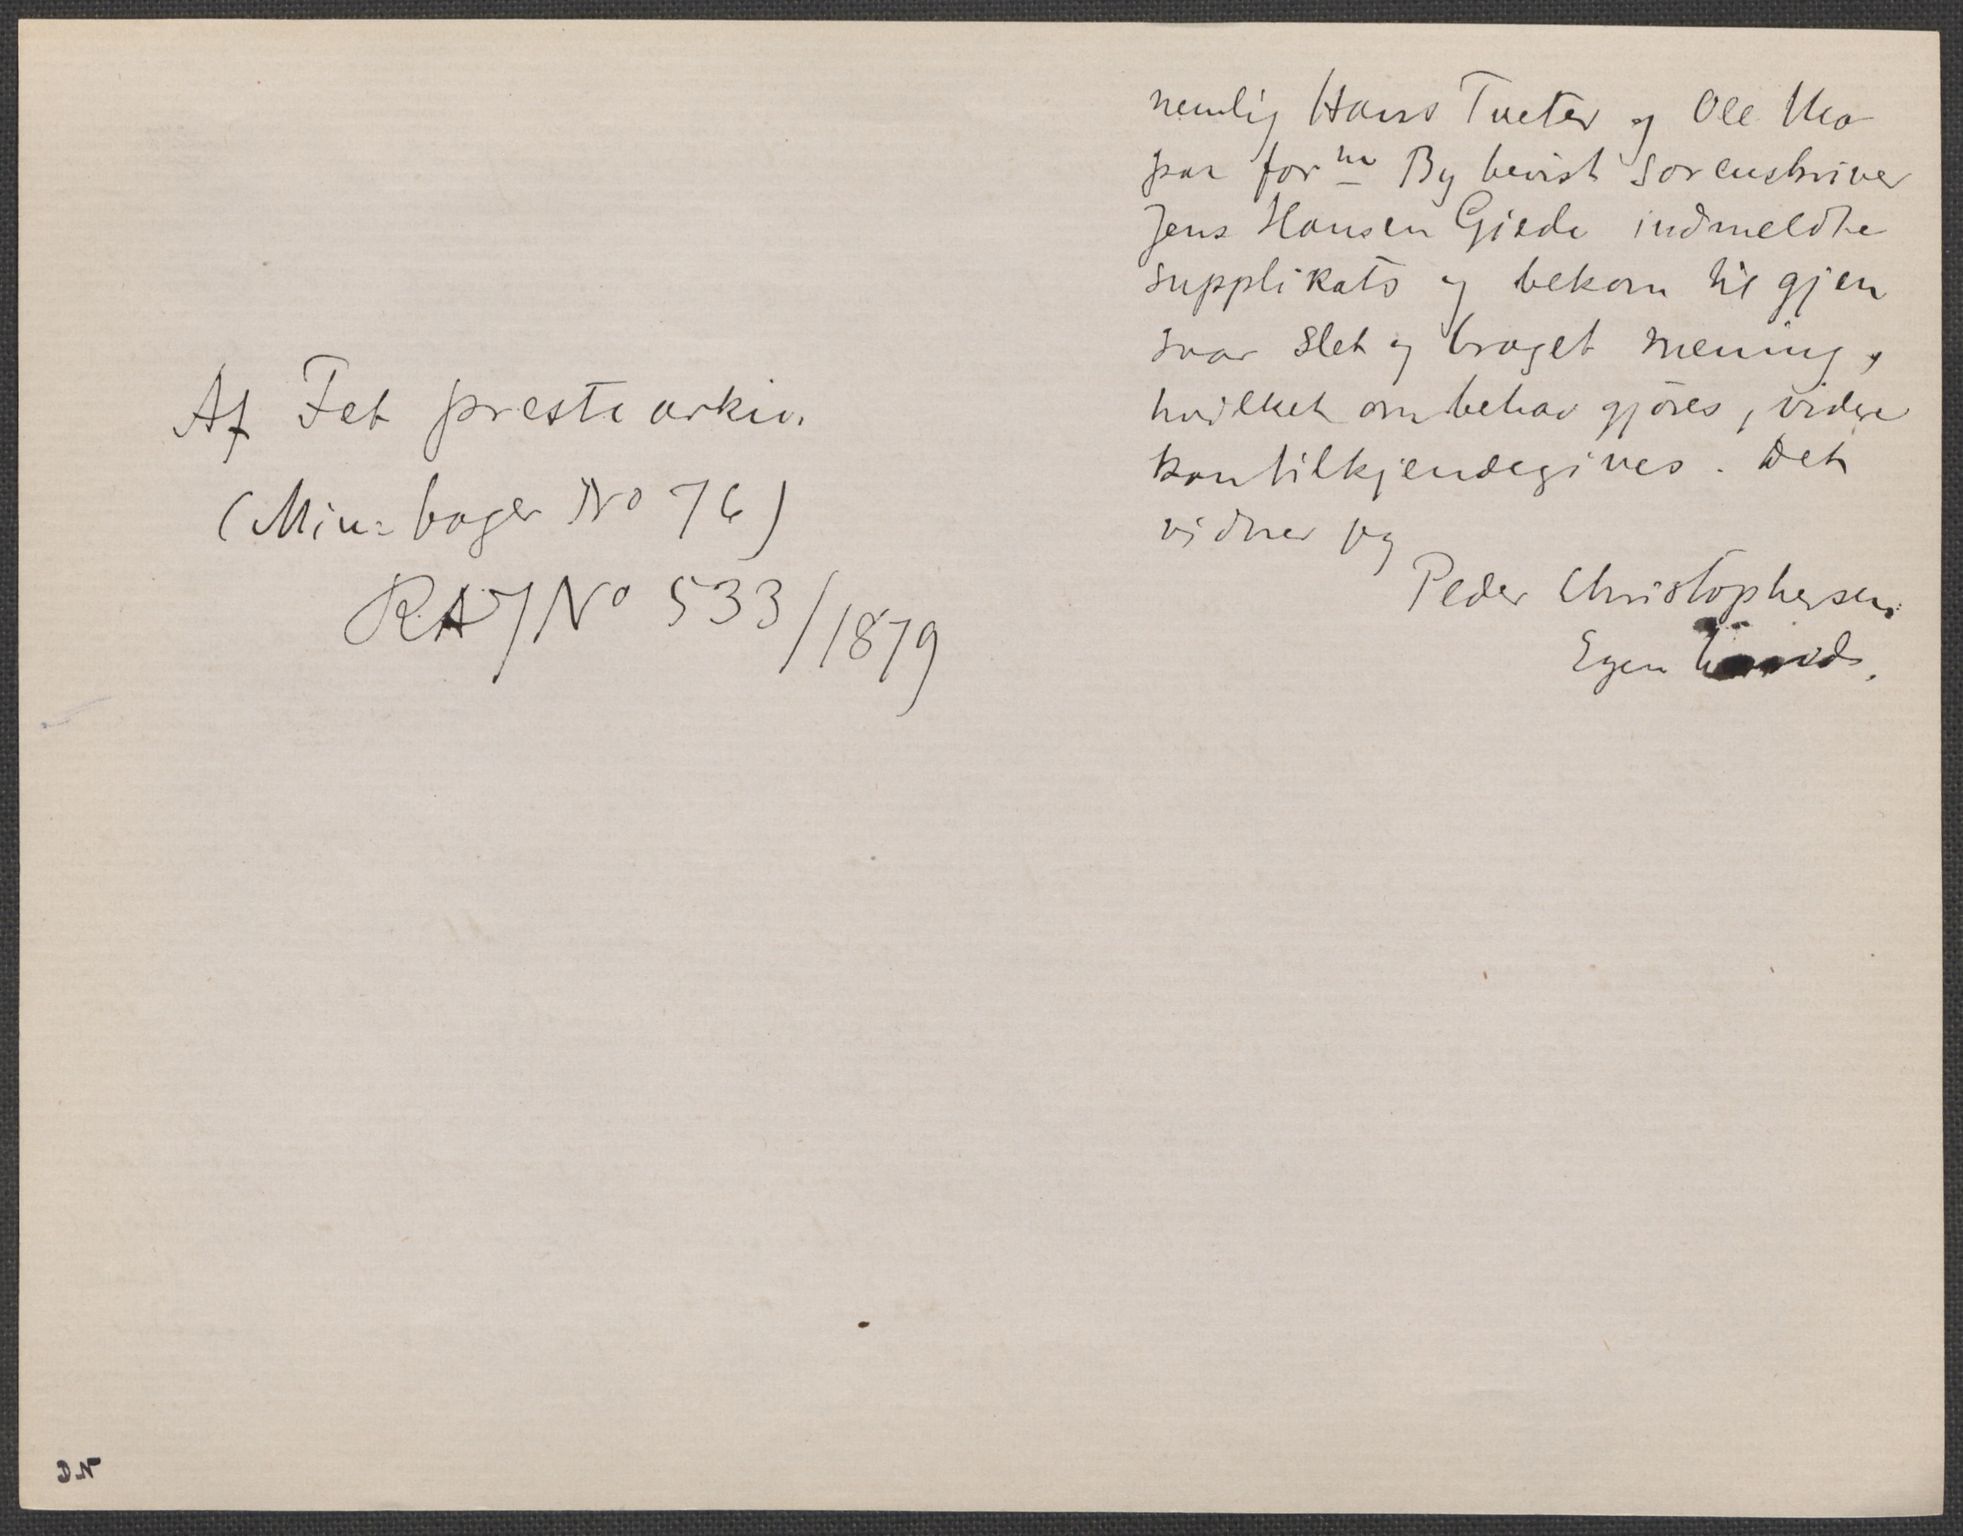 Af Fet prestearkiv.
(Min: bager No 76)
RA J No 533/1879
nemlig Hans Tveter og Ole Moe
paa forne By bevist Sorenskriver
Jens Hansen Giede indmeldte
supplikats og bekom til gjen
svar slet og braget mening,
hvilket om behov gjöres, videre
kan tilkjendegives. Det
vidner jeg
Peder Christophersen
Egen haand.
DN